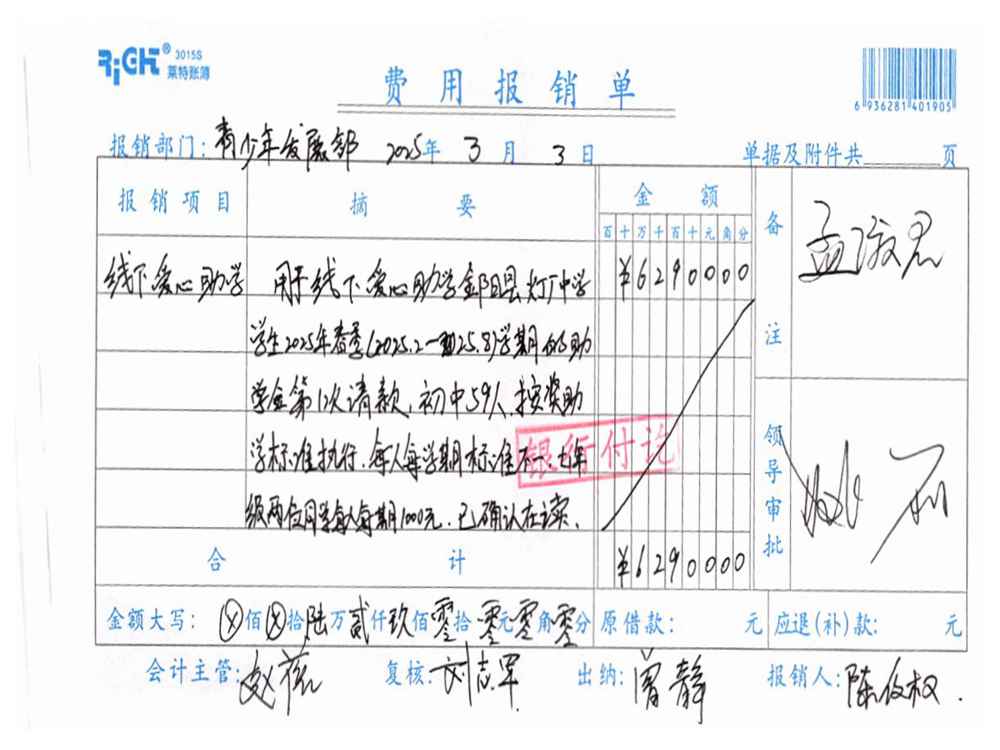 RiGHT® 3015S
莱特账簿
费用报销单
6 936281 401905
报销部门：青少年发展部 2025年 3 月 3 日 单据及附件共 页
报销项目 摘要 金额 备注
百十万千百十元角分
线下爱心助学 用于线下爱心助学郧阳县灯厂中学 ¥6290000
学生2025年春季(2025.2一2025.8)学期的助
学金第12次请款，初中59人，按奖助
学标准执行，每人每学期标准不一，七年
级两位同学每人每期1000元，已确认在读。
银行付讫
领导审批
合计 ¥6290000
金额大写：ⓧ佰ⓧ拾陆万贰仟玖佰零拾零元零角零分 原借款： 元 应退(补)款： 元
会计主管： 复核：刘志军 出纳：曾静 报销人：陈俊权